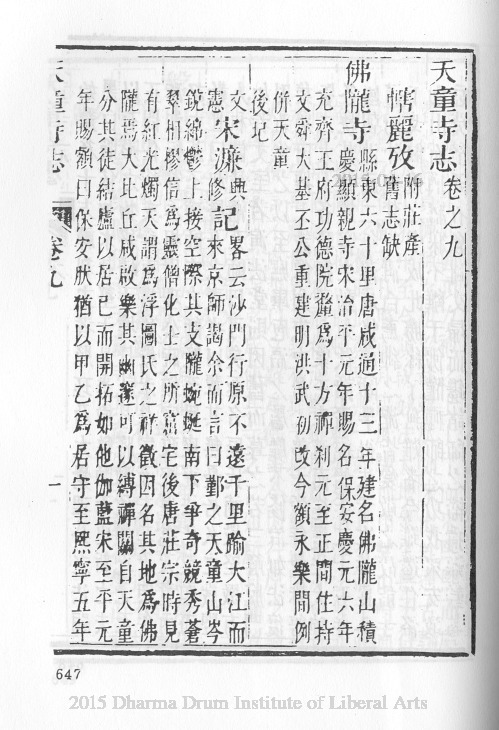 天童寺志卷之九
轄麗攷
附莊產
舊志缺
佛隴寺
縣東六十里唐咸通十三年建名佛隴山積
慶顯親寺宋治平元年賜名保安慶元六年
充齊王府功德院蠲為十方禪刹元至正間住持
文舜大基丕公重建明洪武初改今額永樂間例
併天童
後圮
文憲宋濂典修記
畧云沙門行原不遠千里踰大江而
來京師謁余而言曰鄞之天童山岑
銳綿鬱上接空際其支隴蜿蜒南下爭奇競秀蒼
翠相樛信為靈僧化士之所窟宅後唐莊宗時見
有紅光燭天謂為浮圖氏之祥徵因名其地為佛
隴焉大比丘咸啟樂其幽邃可以縛禪關自天童
分其徒結廬以居已而開拓如他伽藍宋至平元
年賜額曰保安肰猶以甲乙為居守至熙寧五年
天童寺志 卷九 一
647
2015 Dharma Drum Institute of Liberal Arts